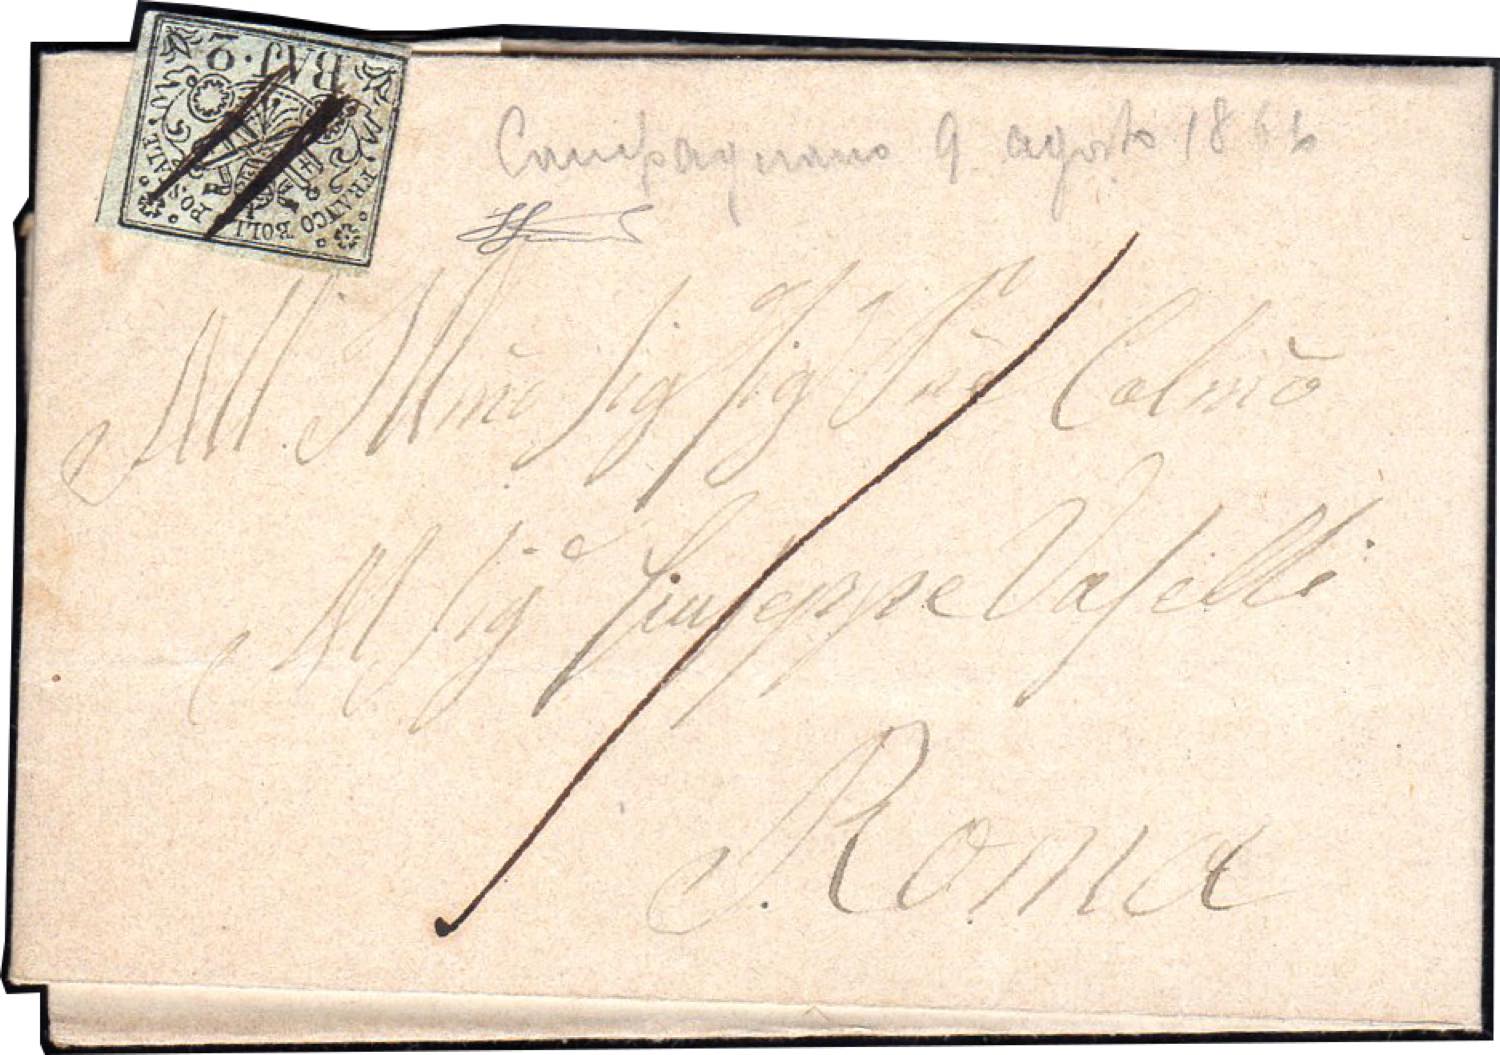 BAJ. 2
FRANCO BOLLO POSTALE
Campagnano 9 agosto 1866
All. Illmo Sig Sig Pne Colmo
Al Sigr Giuseppe Vaselli
Roma